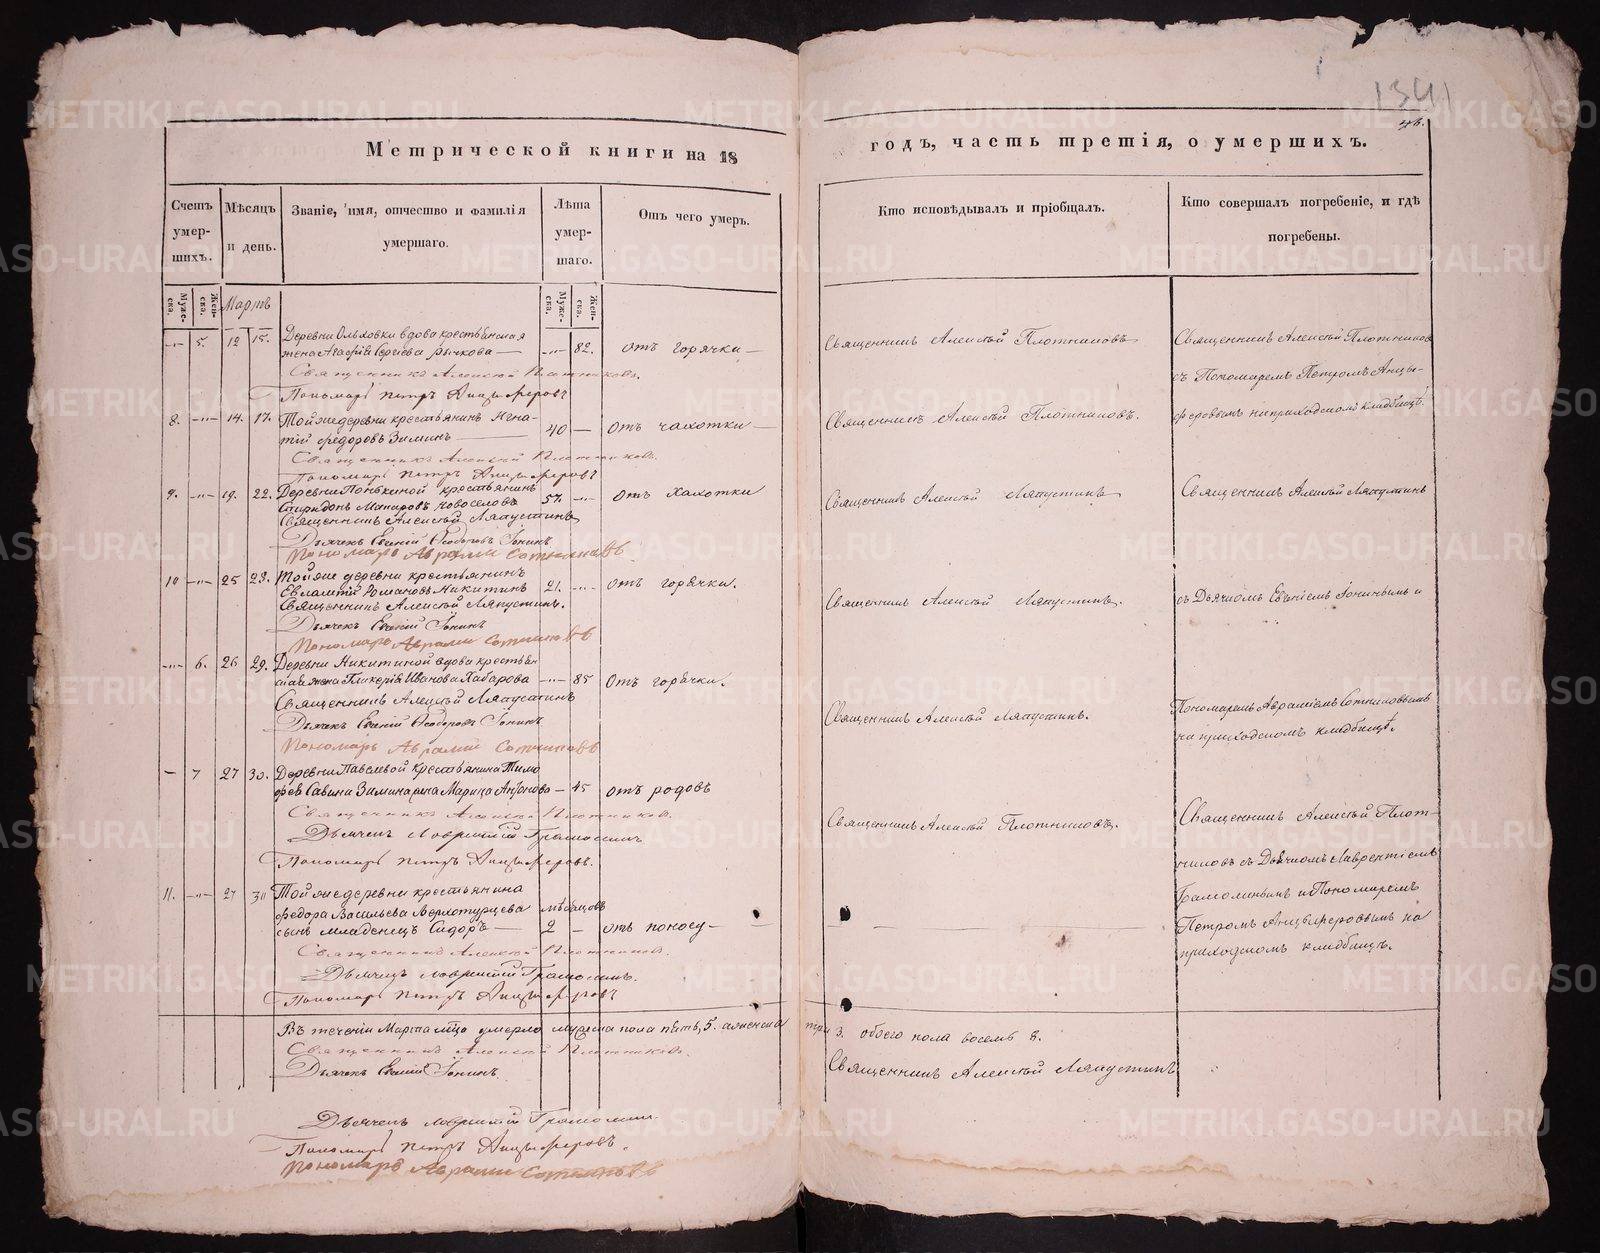 1341
Метрической книги на 18
годъ, часть третія, о умершихъ.
Счетъ умер-шихъ.
Мѣсяцъ и день.
Званіе, имя, отчество и фамилія умершаго.
Лѣта умер-шаго.
Отъ чего умеръ.
Кто исповѣдывалъ и пріобщалъ.
Кто совершалъ погребеніе, и гдѣ погребены.
Муже-ска.
Жен-ска.
Мартъ
Муже-ска.
Жен-ска.
5. 12 15. Деревни Ольховки вдова крестьянская
жена Агафія Сергеева Рычкова 82. отъ горячки
Священникъ Алексѣй Плотниковъ
Священникъ Алексѣй Плотниковъ
Священникъ Алексѣй Плотниковъ.
съ Пономаремъ Петромъ Анцы-
Пономарь Петръ Анцыферовъ
8. 14. 17. Тойже деревни крестьянинъ Игна-
тій Федоровъ Зиминъ 40 отъ чахотки
Священникъ Алексѣй Плотниковъ.
феровымъ на приходскомъ кладбищѣ.
Священникъ Алексѣй Плотниковъ.
Пономарь Петръ Анцыферовъ
9. 19. 22. Деревни крестьянинъ
Спиридонъ Макаровъ Новоселовъ 57. отъ чахотки
Священникъ Алексѣй Ляпустинъ
Священникъ Алексѣй Ляпустинъ
Священникъ Алексѣй Ляпустинъ
Дьячекъ Евгеній Ѳеодоровъ Іонинъ
Пономарь Аврамій Сотниковъ
10 25 28. Тойже деревни крестьянинъ
Евлампій Романовъ Никитинъ 21. отъ горячки.
Священникъ Алексѣй Ляпустинъ.
Священникъ Алексѣй Ляпустинъ.
съ Дьячкомъ Евгеніемъ Іонинымъ и
Дьячекъ Евгеній Іонинъ
Пономарь Аврамій Сотниковъ
6. 26 29. Деревни Никитиной вдова крестьян
ская жена Гликерія Иванова 85 отъ горячки.
Священникъ Алексѣй Ляпустинъ
Священникъ Алексѣй Ляпустинъ.
Пономаремъ Авраміемъ Сотниковымъ
на приходскомъ кладбищѣ.
Дьячекъ Евгеній Ѳеодоровъ Іонинъ
Пономарь Аврамій Сотниковъ
7 27 30. Деревни Павлевой крестьянина Тимо
фея Савина Зимина жена Марица Антонова 45 отъ родовъ
Священникъ Алексѣй Плотниковъ.
Священникъ Алексѣй Плотниковъ.
Священникъ Алексѣй Плот-
Дьячекъ Лаврентій
Пономарь Петръ Анцыферовъ.
никовъ съ Дьячкомъ Лаврентіемъ
11. 27 31 Тойже деревни крестьянина
Федора Васильева Верхотурцева мѣсяцовъ
сынъ младенецъ Сидоръ 2 отъ поносу
и Пономаремъ
Петромъ Анцыферовымъ на
приходскомъ кладбищѣ.
Священникъ Алексѣй Плотниковъ.
Дьячекъ Лаврентій
Пономарь Петръ Анцыферовъ
Въ теченіи Марта мца умерло мужеска пола пять, 5. а женска три 3. обоего пола восемь 8.
Священникъ Алексѣй Плотниковъ.
Дьячекъ Евгеній Іонинъ.
Священникъ Алексѣй Ляпустинъ
Дьячекъ Лаврентій
Пономарь Петръ Анцыферовъ.
Пономарь Аврамій Сотниковъ
METRIKI.GASO-URAL.RU